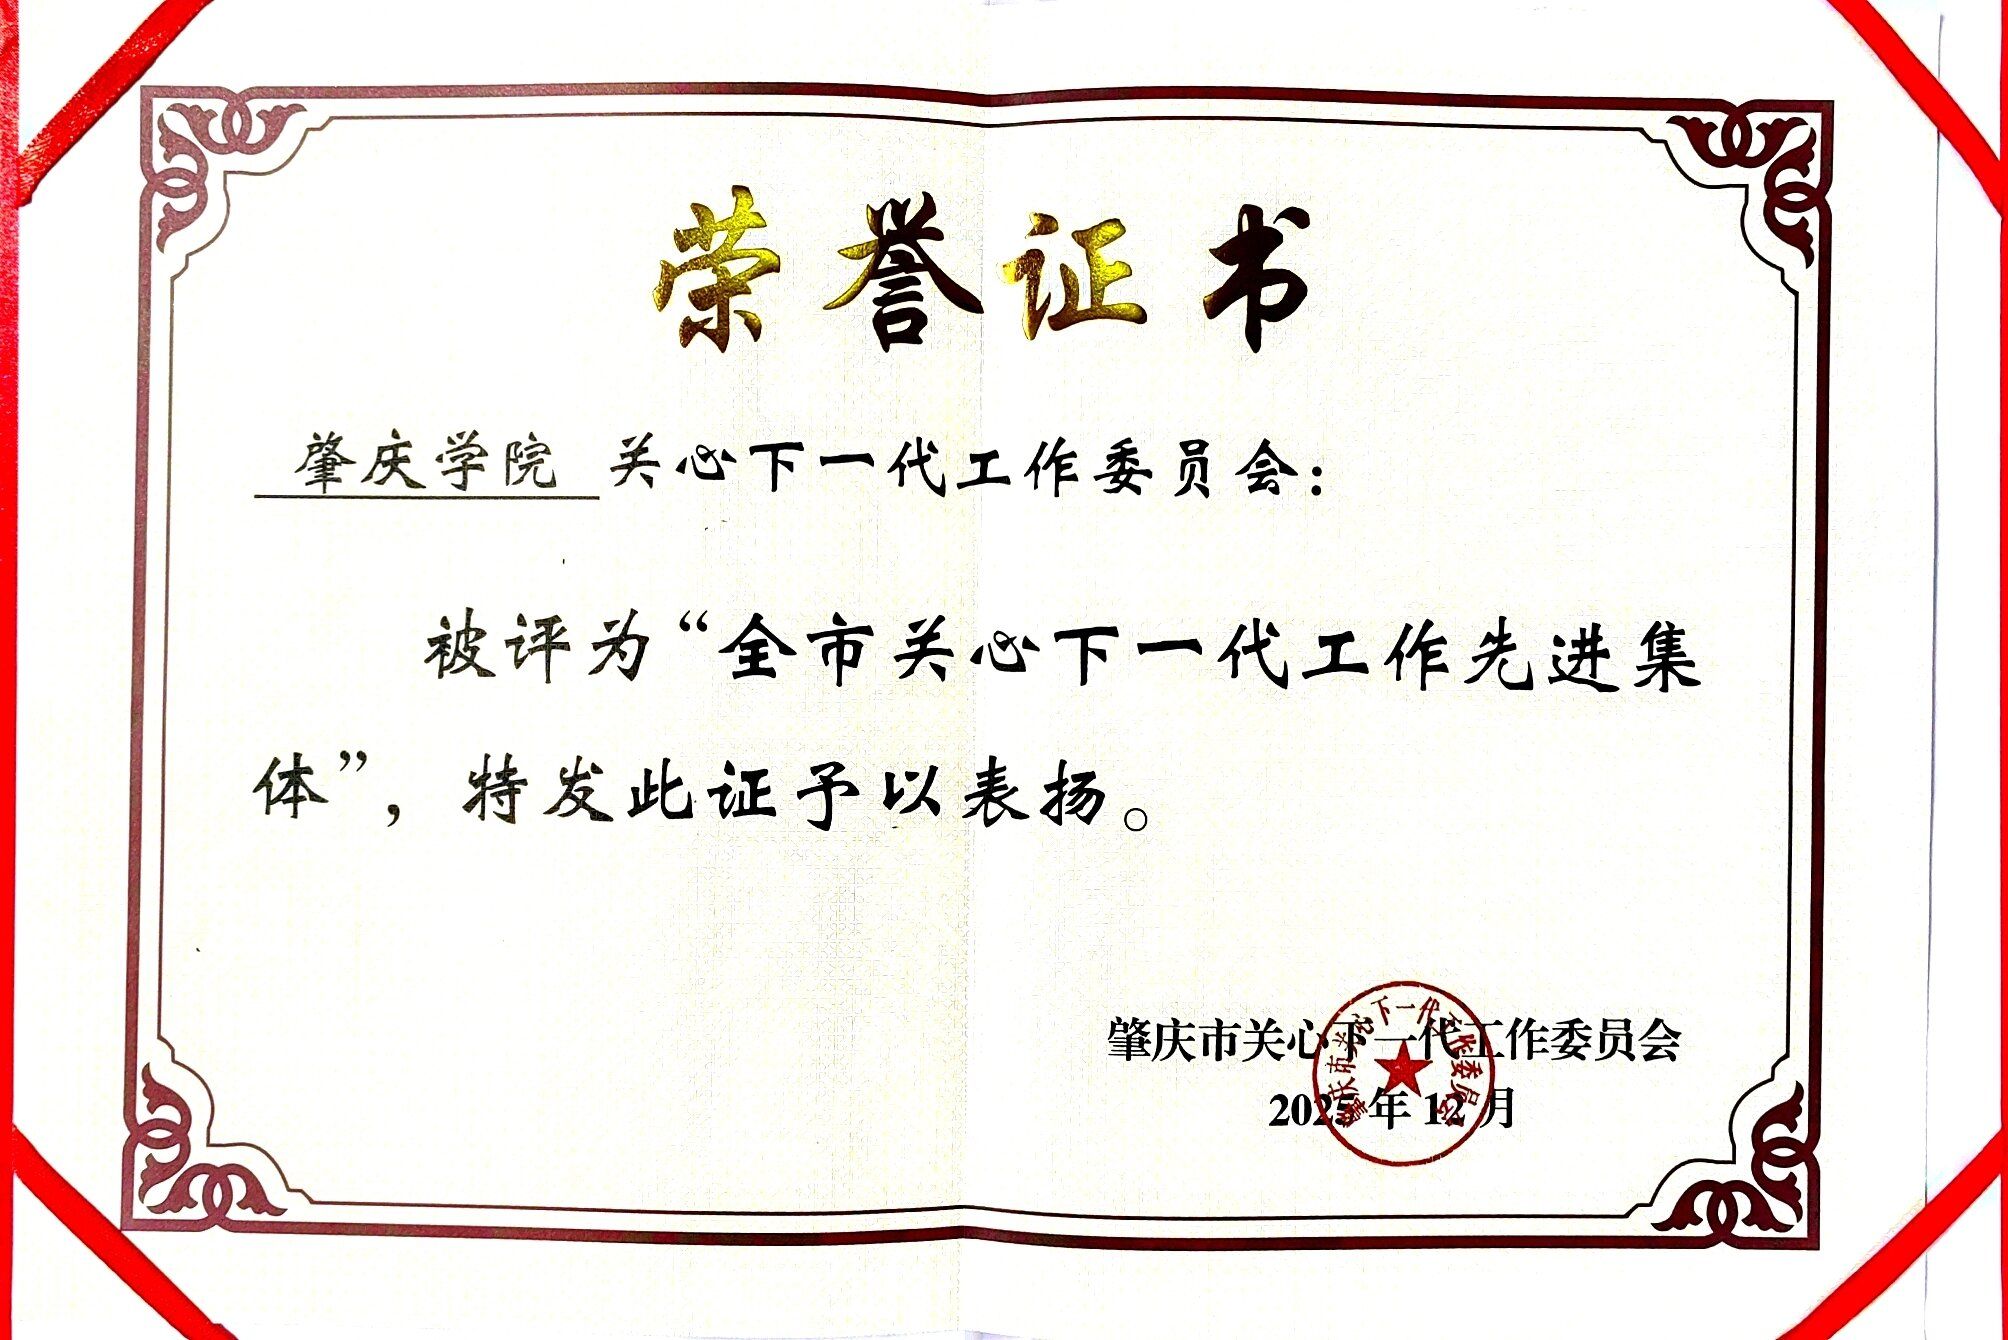 荣誉证书
肇庆学院 关心下一代工作委员会：
被评为“全市关心下一代工作先进集
体”，特发此证予以表扬。
肇庆市关心下一代工作委员会
2025年12月
肇庆市关心下一代工作委员会